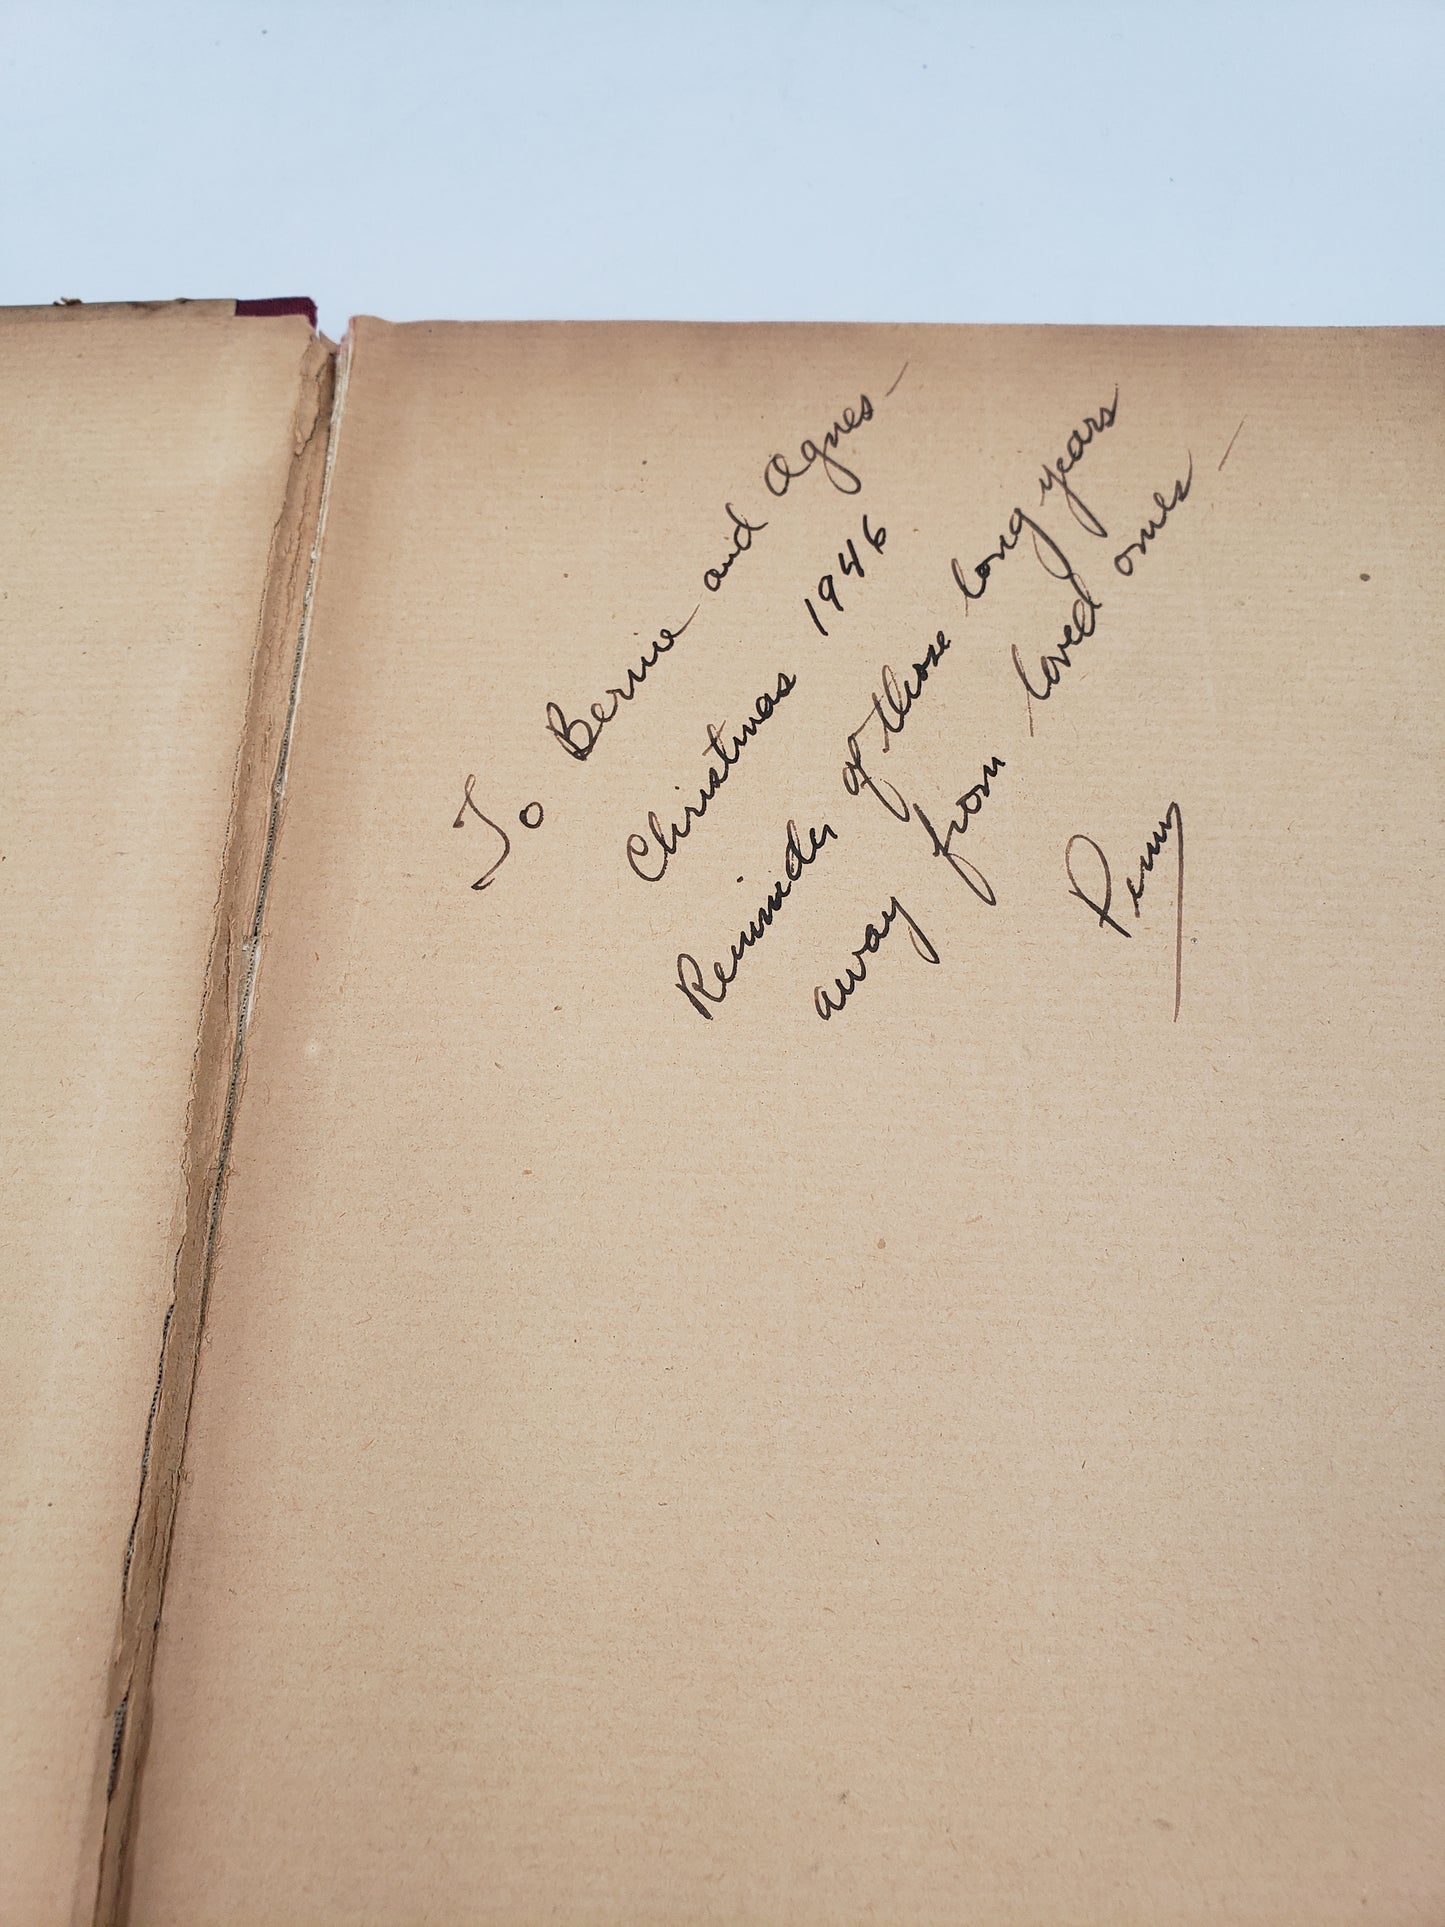 To Bernie and Agnes -
Christmas 1946
Reminder of those long years
away from loved ones -
Penny